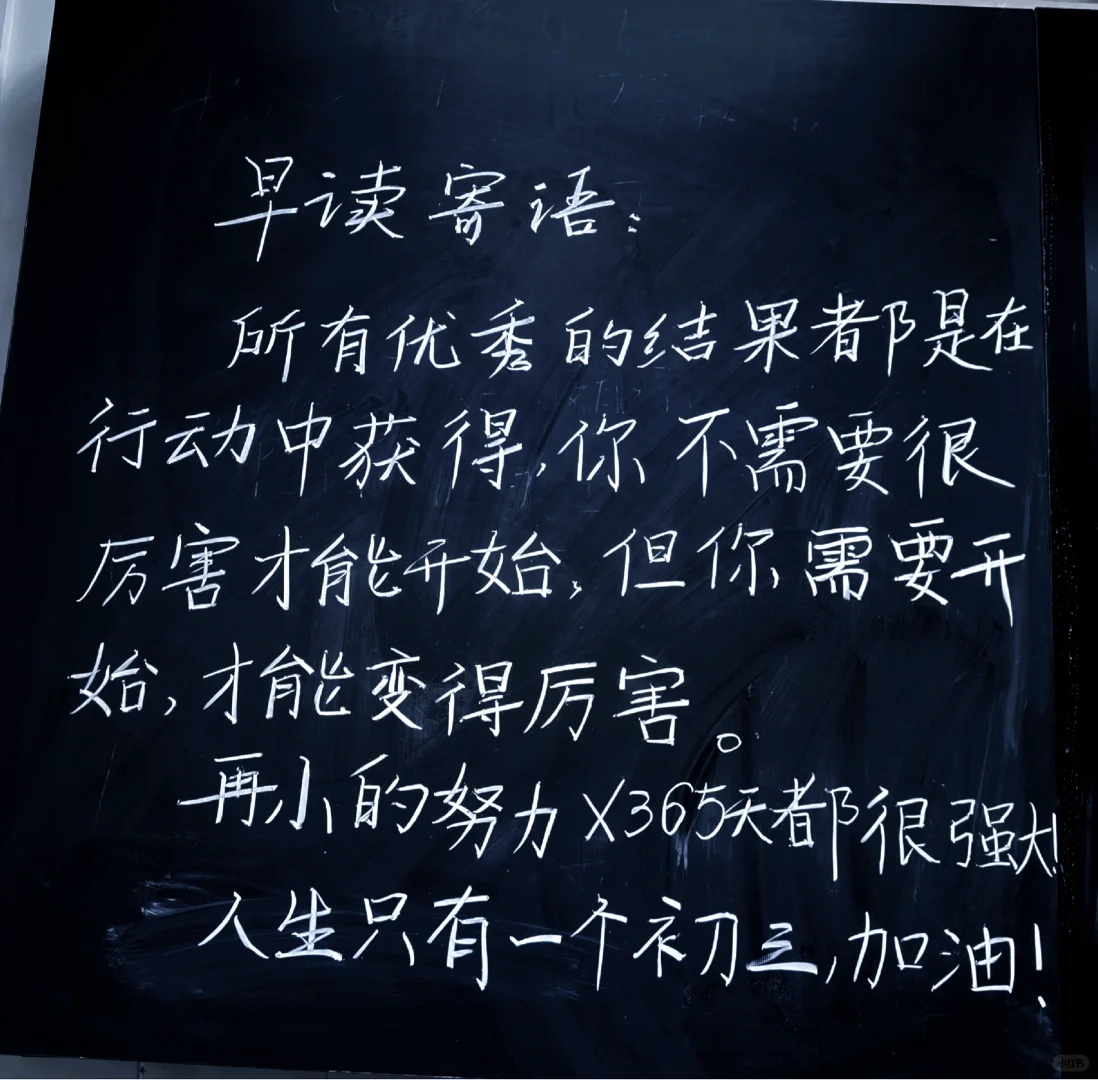 早读寄语：
所有优秀的结果都是在
行动中获得，你不需要很
厉害才能开始，但你需要开
始，才能变得厉害。
再小的努力X365天都很强大！
人生只有一个初三，加油！
小红书